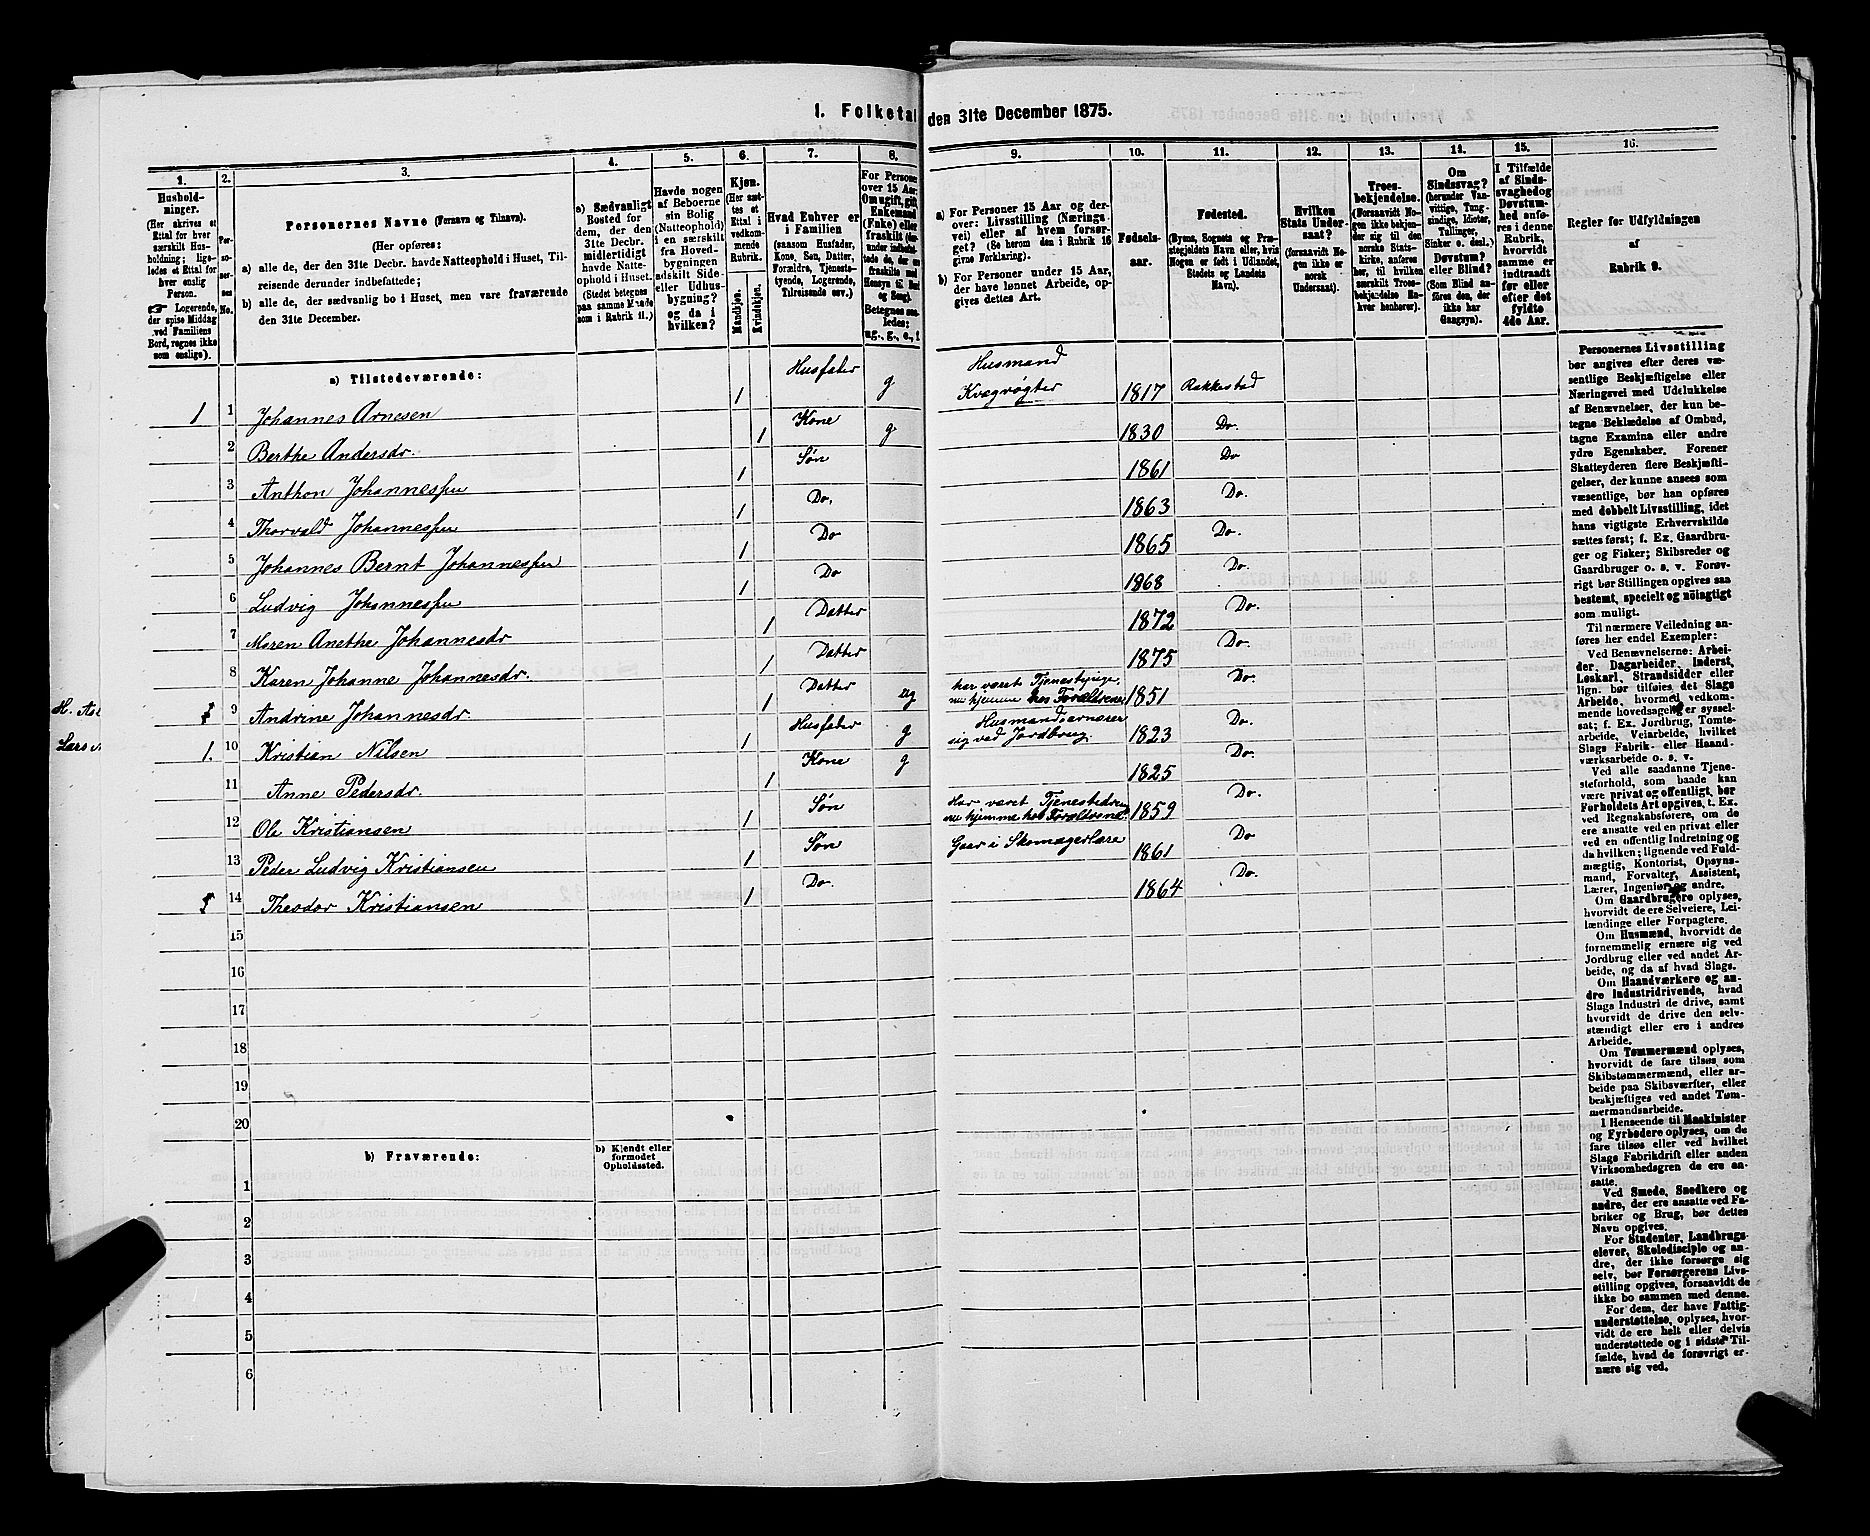 1. Folketal den 31te December 1875.
1.
Hushold-
ninger.
(Her skrives et
Ettal for hver
særskilt Hus-
holdning; lige-
ledes et Ettal for
hver enslig
Person.
Logerende,
der spise Middag
ved Familiens
Bord, regnes ikke
som enslige).
2.
Per-
so-
ner-
nes
No.
3.
Personernes Navne (Fornavn og Tilnavn).
(Her opføres:
a) alle de, der den 31te Decbr. havde Natteophold i Huset, Til-
reisende derunder indbefattede;
b) alle de, der sædvanlig bo i Huset, men vare fraværende
den 31te December.
4.
a) Sædvanligt
Bosted for
dem, der den
31te Decbr.
midlertidigt
havde Natte-
ophold i Huset.
(Stedet betegnes
paa samme Maade
som i Rubrik 11.)
5.
Havde nogen
af Beboerne
sin Bolig
(Natteophold)
i en særskilt
fra Hoved-
bygningen
adskilt Side-
eller Udhus-
bygning?
og da i
hvilken?
6.
Kjøn.
(Her sæt-
tes et
Ettal i
vedkom-
mende
Rubrik.
Mandkjøn.
Kvindekjøn.
7.
Hvad Enhver er
i Familien
(saasom Husfader,
Kone, Søn, Datter,
Forældre, Tjeneste-
tyende, Logerende,
Tilreisende osv.)
8.
For Personer
over 15 Aar:
Om ugift, gift,
Enkemand
(Enke) eller
fraskilt
Betegnes saa-
ledes:
ug., g., e., f.
9.
a) For Personer 15 Aar og der-
over: Livsstilling (Nærings-
vei) eller af hvem forsør-
get? (Se herom den i Rubrik 16
givne Forklaring).
b) For Personer under 15 Aar,
der have lønnet Arbeide, op-
gives dettes Art.
10.
Fødsels-
aar.
11.
Fødested.
(Byens, Sognets og Præ-
stegjeldets Navn eller, hvis
Nogen er født i Udlandet,
Stedets og Landets
Navn).
12.
Hvilken
Stats Under-
saat?
(forsaavidt No-
gen ikke er
norsk
Undersaat).
13.
Troes-
bekjendelse.
(Forsaavidt No-
gen ikke bekjen-
der sig til den
norske Stats-
kirke, anføres
her, til hvilken
særskilt Troes-
bekjendelse En-
hver henhører).
14.
Om
Sindssvag?
(herunder Van-
vittige, Tung-
sindige, Idioter,
Tullinger,
Sinker o. desl.)
Døvstum?
eller Blind?
(Som Blind an-
føres den, der
ikke har
Gangsyn).
15.
I Tilfælde
af Sinds-
svaghed og
Døvstum-
hed anfø-
res i denne
Rubrik,
hvorvidt
samme er
indtraadt
før eller
efter det
fyldte
4de Aar.
16.
Regler for Udfyldningen
af
Rubrik 9.
a) Tilstedeværende:
1 1 Johannes Arnesen 1 Husfader g Husmand Kvægrøgter 1817 Rakkestad
2 Berthe Andersdr. 1 Kone g 1830 Do.
3 Anthon Johannessen 1 Søn 1861 Do
4 Thorvald Johannessen 1 Do. 1863 Do.
5 Johannes Bernt Johannessen 1 Do 1865 Do.
6 Ludvig Johannessen 1 Do 1868 Do.
7 Maren Anethe Johannesdr 1 Datter 1872 Do.
8 Karen Johanne Johannesdr. 1 Datter 1875 Do.
9 Andrine Johannesdr. 1 Datter ug har været Tjenestepige, nu hjemme hos Forældrene 1851 Do.
1. 10 Kristian Nilsen 1 Husfader g Husmand, ernærer sig ved Jordbrug. 1823 Do.
11 Anne Pedersdr. 1 Kone g 1825 Do.
12 Ole Kristiansen 1 Søn Har været Tjenestedreng nu hjemme hos Forældrene 1859 Do.
13 Peder Ludvig Kristiansen 1 Søn Gaar i Skomagerlære 1861 Do
14 Theodor Kristiansen 1 Do. 1864 Do.
15
16
17
18
19
20
b) Fraværende:
b) Kjendt eller
formodet
Opholdssted.
1
2
3
4
5
6
Personernes Livsstilling
bør angives efter deres væ-
sentlige Beskjæftigelse eller
Næringsvei med Udelukkelse
af Benævnelser, der kun be-
tegne Beklædelse af Ombud,
tagne Examina eller andre
ydre Egenskaber. Forener
Skatteyderen flere Beskjæfti-
gelser, der kunne ansees som
væsentlige, bør han opføres
med dobbelt Livsstilling, idet
hans vigtigste Erhvervskilde
sættes først; f. Ex. Gaardbru-
ger og Fisker; Skibsreder og
Gaardbruger o. s. v. Forøv-
rigt bør Stillingen opgives saa
bestemt, specielt og nöiagtigt
som muligt.
Til nærmere Veiledning an-
føres her endel Exempler:
Ved Benævnelserne: Arbei-
der, Dagarbeider, Inderst,
Løskarl, Strandsidder eller
lign. bør tilføies det Slags
Arbeide, hvormed vedkom-
mende hovedsagelig er syssel-
sat; f. Ex. Jordbrug, Tomte-
arbeide, Veiarbeide, hvilket
Slags Fabrik- eller Haand-
værksarbeide o. s. v.
Ved alle saadanne Tjene-
steforhold, som baade kan
være privat og offentligt, bør
Forholdets Art opgives, t. Ex.
ved Regnskabsførere, om de
ere ansatte ved en privat eller
ved en offentlig Indretning og
da hvilken; lignende ved Fuld-
mægtig, Kontorist, Opsyns-
mand, Forvalter, Assistent,
Lærer, Ingeniør og andre.
Om Gaardbrugere oplyses,
hvorvidt de ere Selveiere, Lei-
lændinge eller Forpagtere.
Om Husmænd, hvorvidt de
fornemmelig ernære sig ved
Jordbrug eller ved andet Ar-
beide, og da af hvad Slags.
Om Haandværkere og an-
dre Industridrivende, hvad
Slags Industri de drive, samt
hvorvidt de drive den selv-
stændigt eller ere i andres
Arbeide.
Om Tømmermænd oplyses,
hvorvidt de fare tilsøs som
Skibstømmermænd, eller ar-
beide paa Skibsværfter, eller
beskjæftiges ved andet Tøm-
mermandsarbeide.
I Henseende til Maskinister
og Fyrbødere oplyses, om de
fare tilsøs eller ved hvilket
Slags Fabrikdrift eller anden
Virksomhedsgren de ere an-
satte.
Ved Smede, Snedkere og
andre, der ere ansatte ved Fa-
briker og Brug, bør dettes
Navn opgives.
For Studenter, Landbrugs-
elever, Skoledisciple og an-
dre, der ikke forsørge sig
selv, bør Forsørgerens Livs-
stilling opgives, forsaavidt de
ikke bo sammen med denne.
For dem, der have Fattig-
understøttelse, oplyses, hvor-
vidt de ere helt eller delvis
understøttede og i sidste Til-
fælde, hvad de forøvrigt er-
nære sig ved.